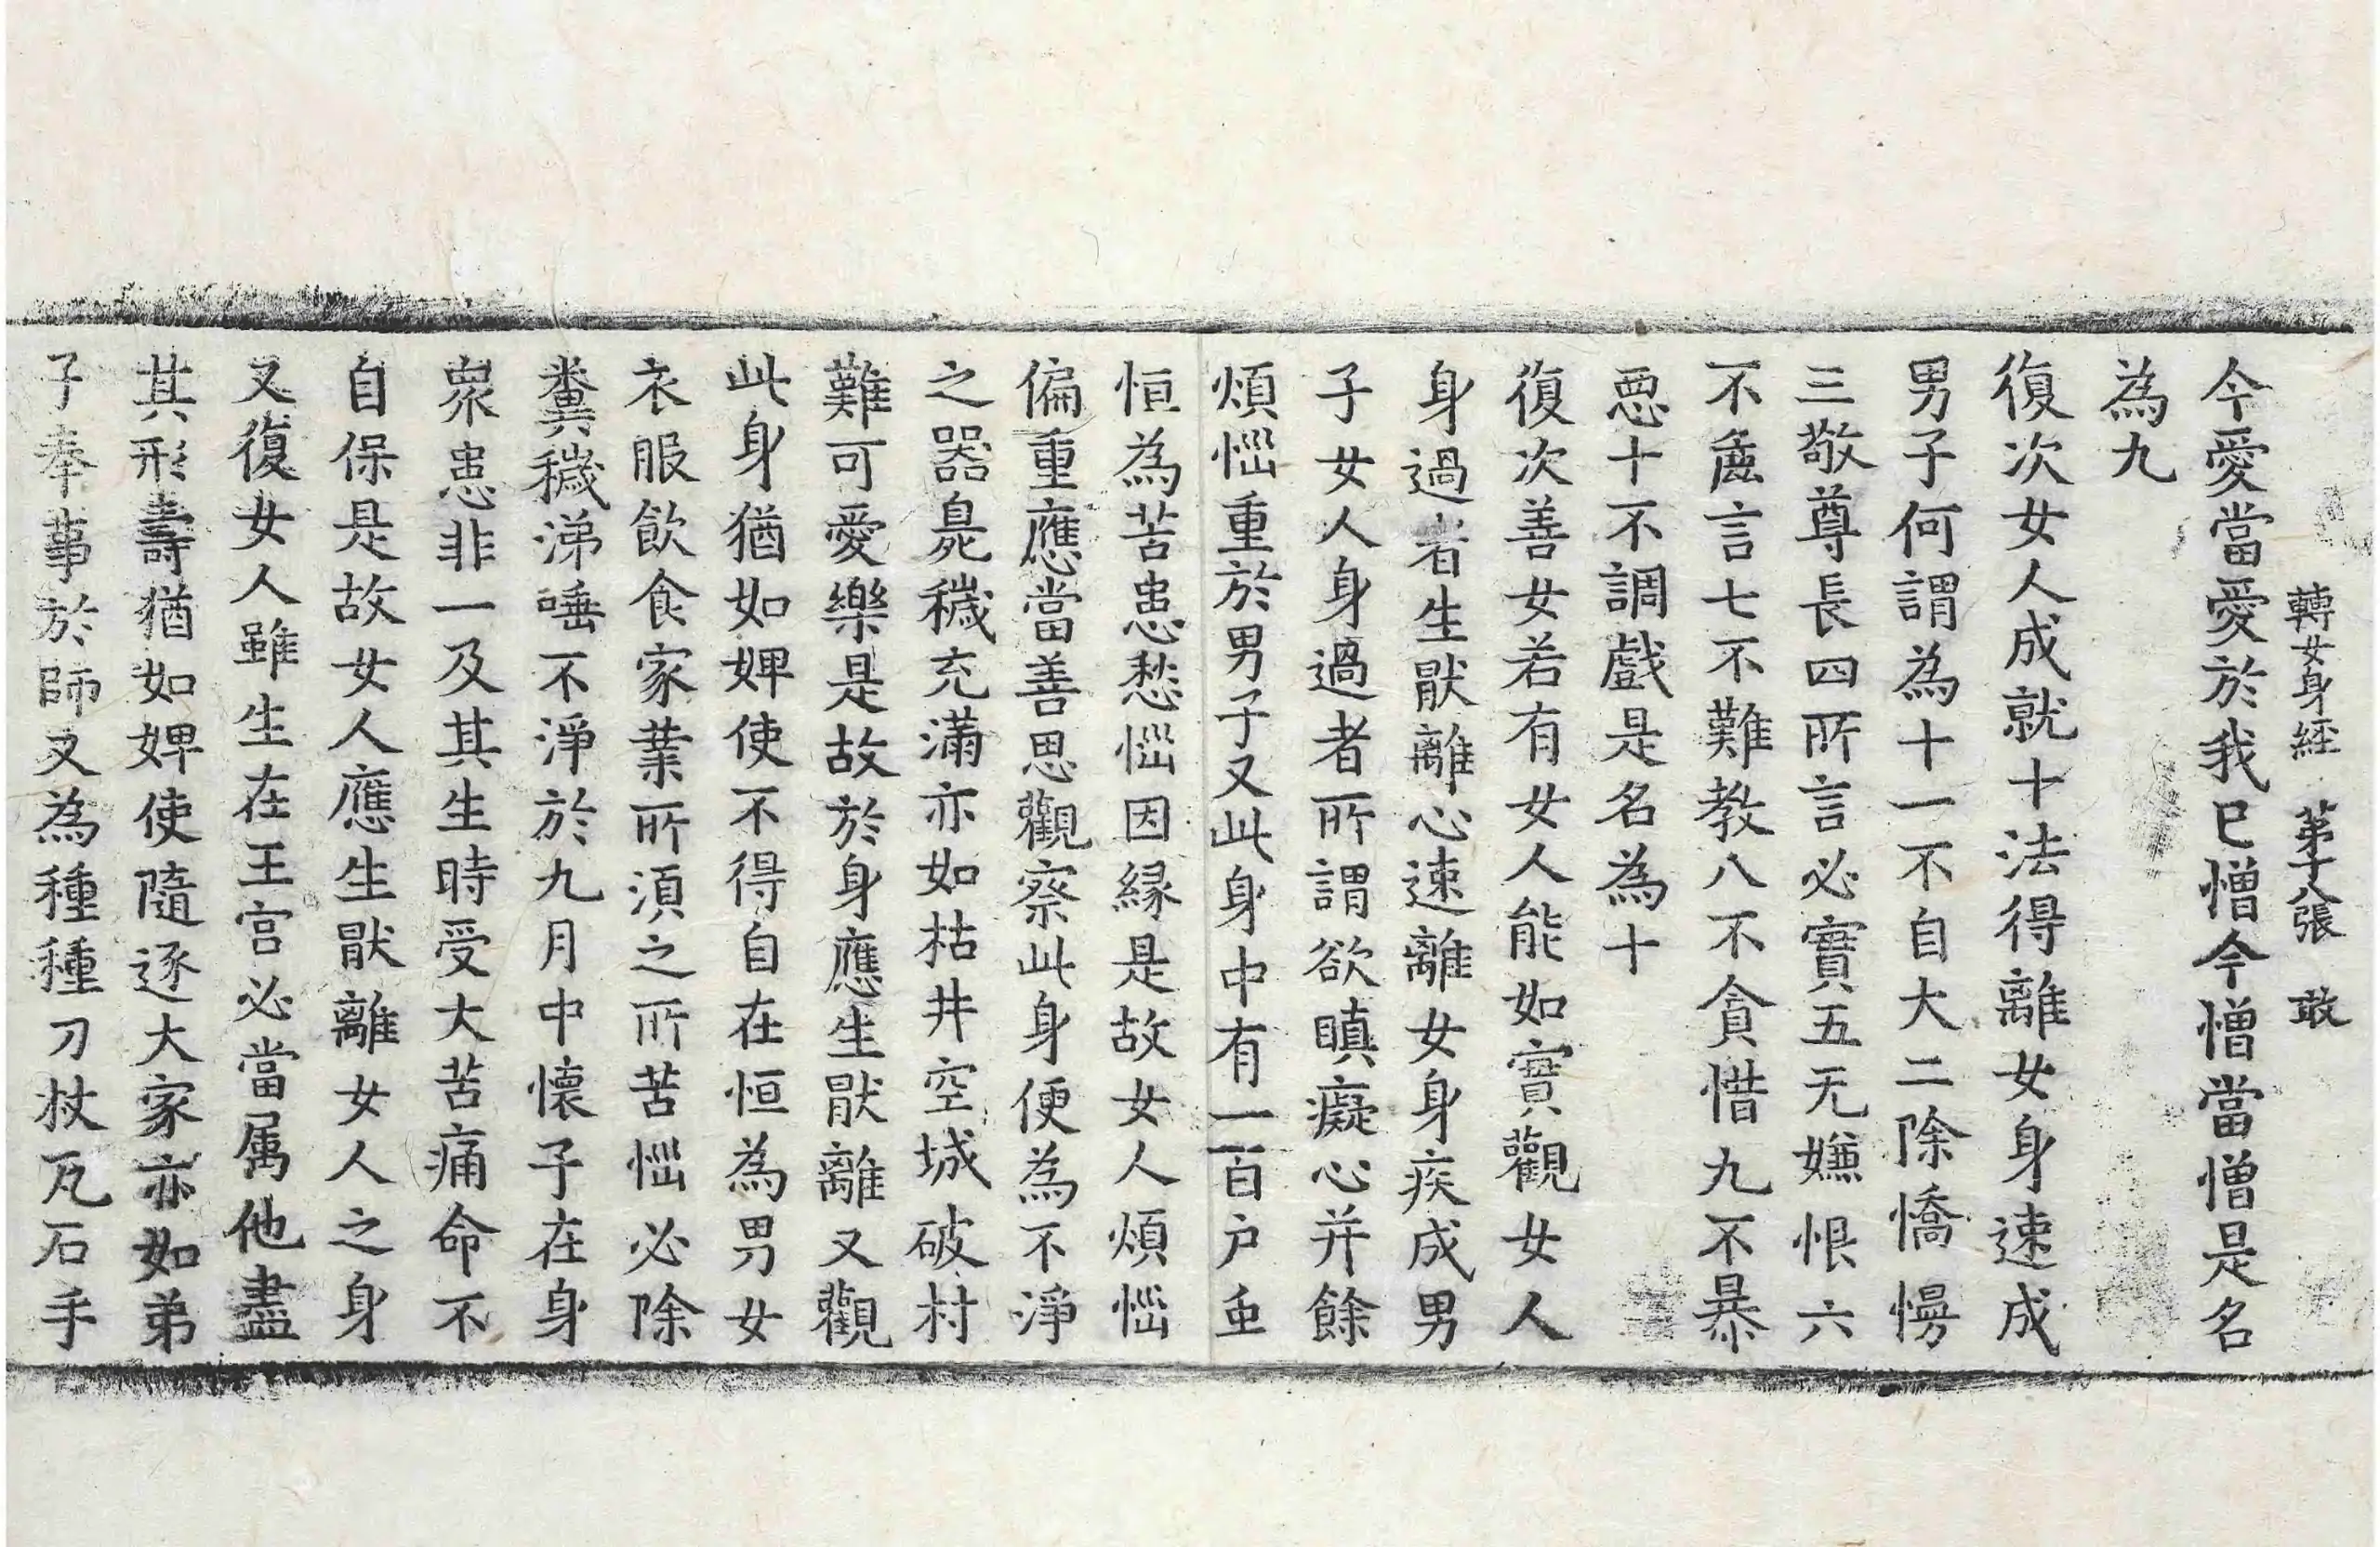 轉女身經 第十八張 敢
今愛當愛於我已憎今憎當憎是名
為九
復次女人成就十法得離女身速成
男子何謂為十一不自大二除憍慢
三敬尊長四所言必實五无嫌恨六
不麁言七不難教八不貪惜九不暴
惡十不調戲是名為十
復次善女若有女人能如實觀女人
身過者生猒離心速離女身疾成男
子女人身過者所謂欲瞋癡心并餘
煩惱重於男子又此身中有一百户虫
恒為苦患愁惱因緣是故女人煩惱
偏重應當善思觀察此身便為不淨
之器臭穢充滿亦如枯井空城破村
難可愛樂是故於身應生猒離又觀
此身猶如婢使不得自在恒為男女
衣服飲食家業所須之所苦惱必除
糞穢涕唾不淨於九月中懷子在身
衆患非一及其生時受大苦痛命不
自保是故女人應生猒離女人之身
又復女人雖生在王宮必當属他盡
其形壽猶如婢使隨逐大家亦如弟
子奉事於師又為種種刀杖瓦石手